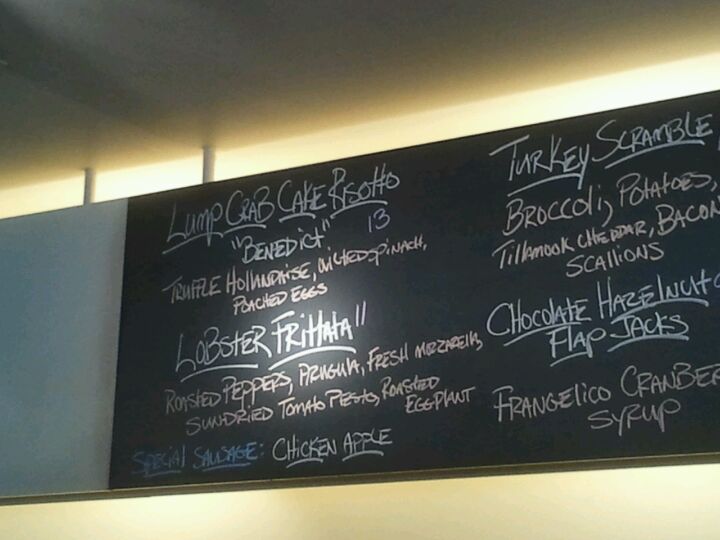 LUMP CRAB CAKE RISOTTO
"BENEDICT" 13
TRUFFLE HOLLANDAISE, WILTED SPINACH,
POACHED EGGS
LOBSTER FRITTATA 11
ROASTED PEPPERS, ARUGULA, FRESH MOZZARELLA,
SUNDRIED TOMATO PESTO, ROASTED
EGGPLANT
SPECIAL SAUSAGE: CHICKEN APPLE
TURKEY SCRAMBLE
BROCCOLI, POTATOES,
TILLAMOOK CHEDDAR, BACON
SCALLIONS
CHOCOLATE HAZELNUT
FLAP JACKS
FRANGELICO CRANBER
SYRUP